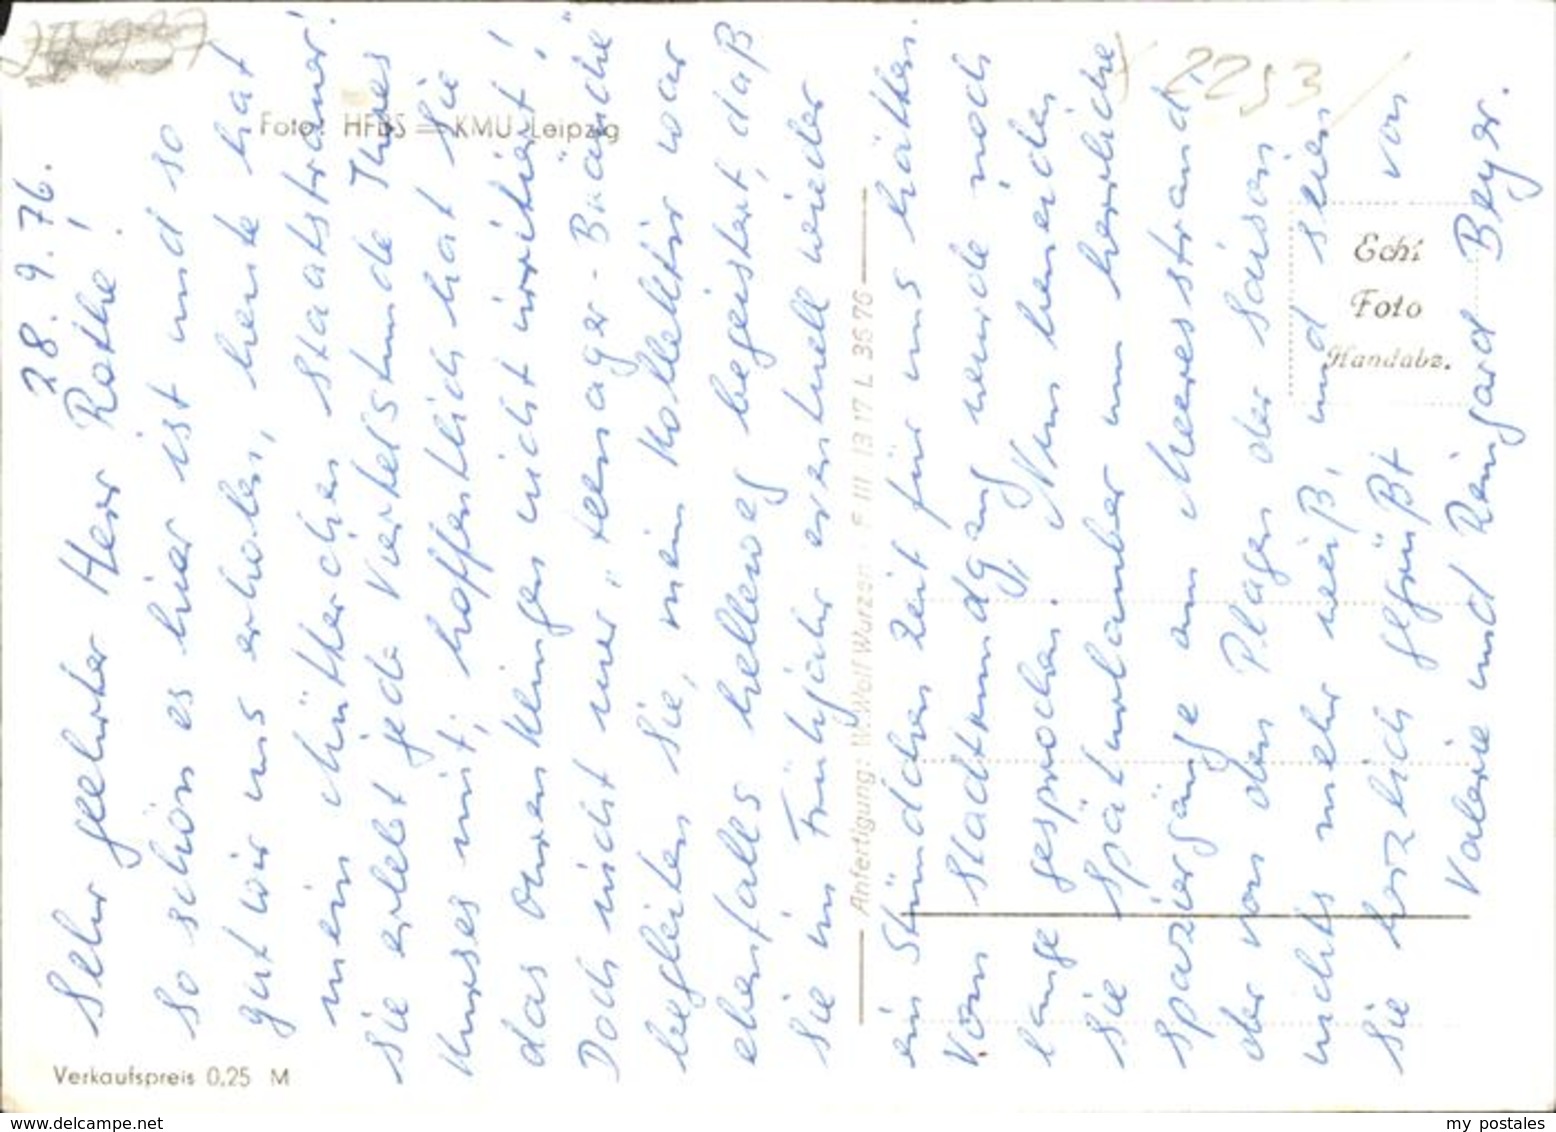 28.9.76.
Sehr geehrter Herr Rothe!
So schön es hier ist und so
gut wir uns erholen, heute hat
mein Mütterchen Staatstränen.
Sie erlebt jede Viertelstunde Ihres
Kurses mit; hoffentlich hat Sie
das Ohrenklingen nicht irritiert!
Doch nicht nur "teenager-Bräuche"
begleiten Sie, mein Kollektiv war
ebenfalls hellweg begeistert, daß
Sie im Frühjahr eventuell wieder
ein Stündchen Zeit für uns hätten.
Vom Stadtrundgang wurde noch
lange gesprochen. Nun beneiden
Sie Späturlauber um herrliche
Spaziergänge am Meeresstrand,
der von den Plagen der Saison
nichts mehr weiß, und seien
Sie herzlich gegrüßt von
Valerie und Reingard Beyer.
Foto: HFBS — KMU Leipzig
Verkaufspreis 0,25 M
Anfertigung: W. Wolf Wurzen · F III 13 17 L 36 76
Echt
Foto
Handabz.
2253
www.delcampe.net
my postales